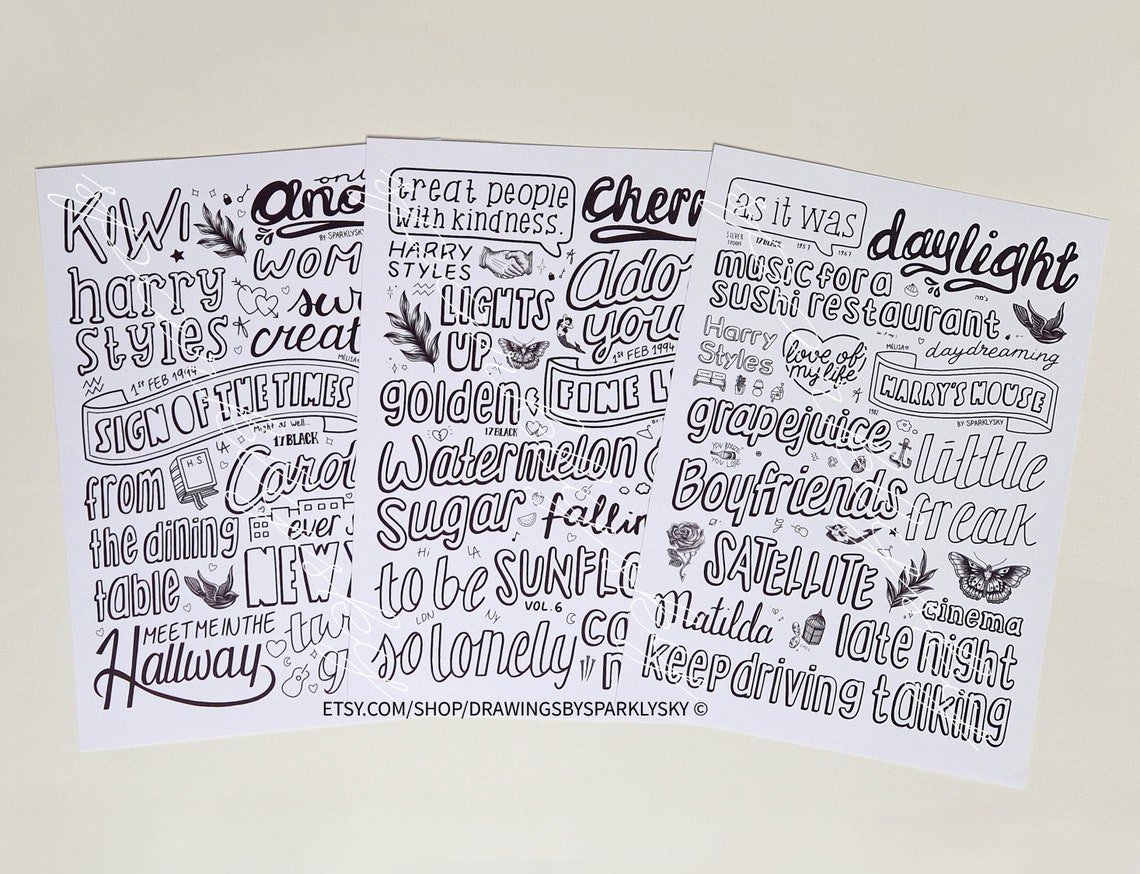 KIWI
on
ano
BY SPARKLYSKY
harry
styles
WOM
sw
creat
MÉLISA
1ST FEB 1994
SIGN OF THE TIMES
Might as well...
17 BLACK
LA
H.S.
from
the dining
table
Caro
ever s
NEW Y
MEET ME IN THE
Hallway
tur
g
treat people
with kindness.
HARRY
STYLES
cherr
LIGHTS
UP
Ado
you
1ST FEB 1994
golden
17 BLACK
FINE L
Watermelon
Sugar
fallin
Hi
LA
to be
so lonely
LDN
NY
SUNFLO
VOL. 6
ca
as it was
daylight
SILVER
SPOON
17 BLACK
1957
1967
music for a
sushi restaurant.
1982's
MÉLISA
daydreaming
Harry
Styles
love of
my life
HARRY'S HOUSE
BY SPARKLYSKY
grapejuice
1982
YOU BOOZE
YOU LOSE
little
freak
Boyfriends
SATELLITE
cinema
Matilda
late night
talking
keep driving
ETSY.COM/SHOP/DRAWINGSBYSPARKLYSKY ©